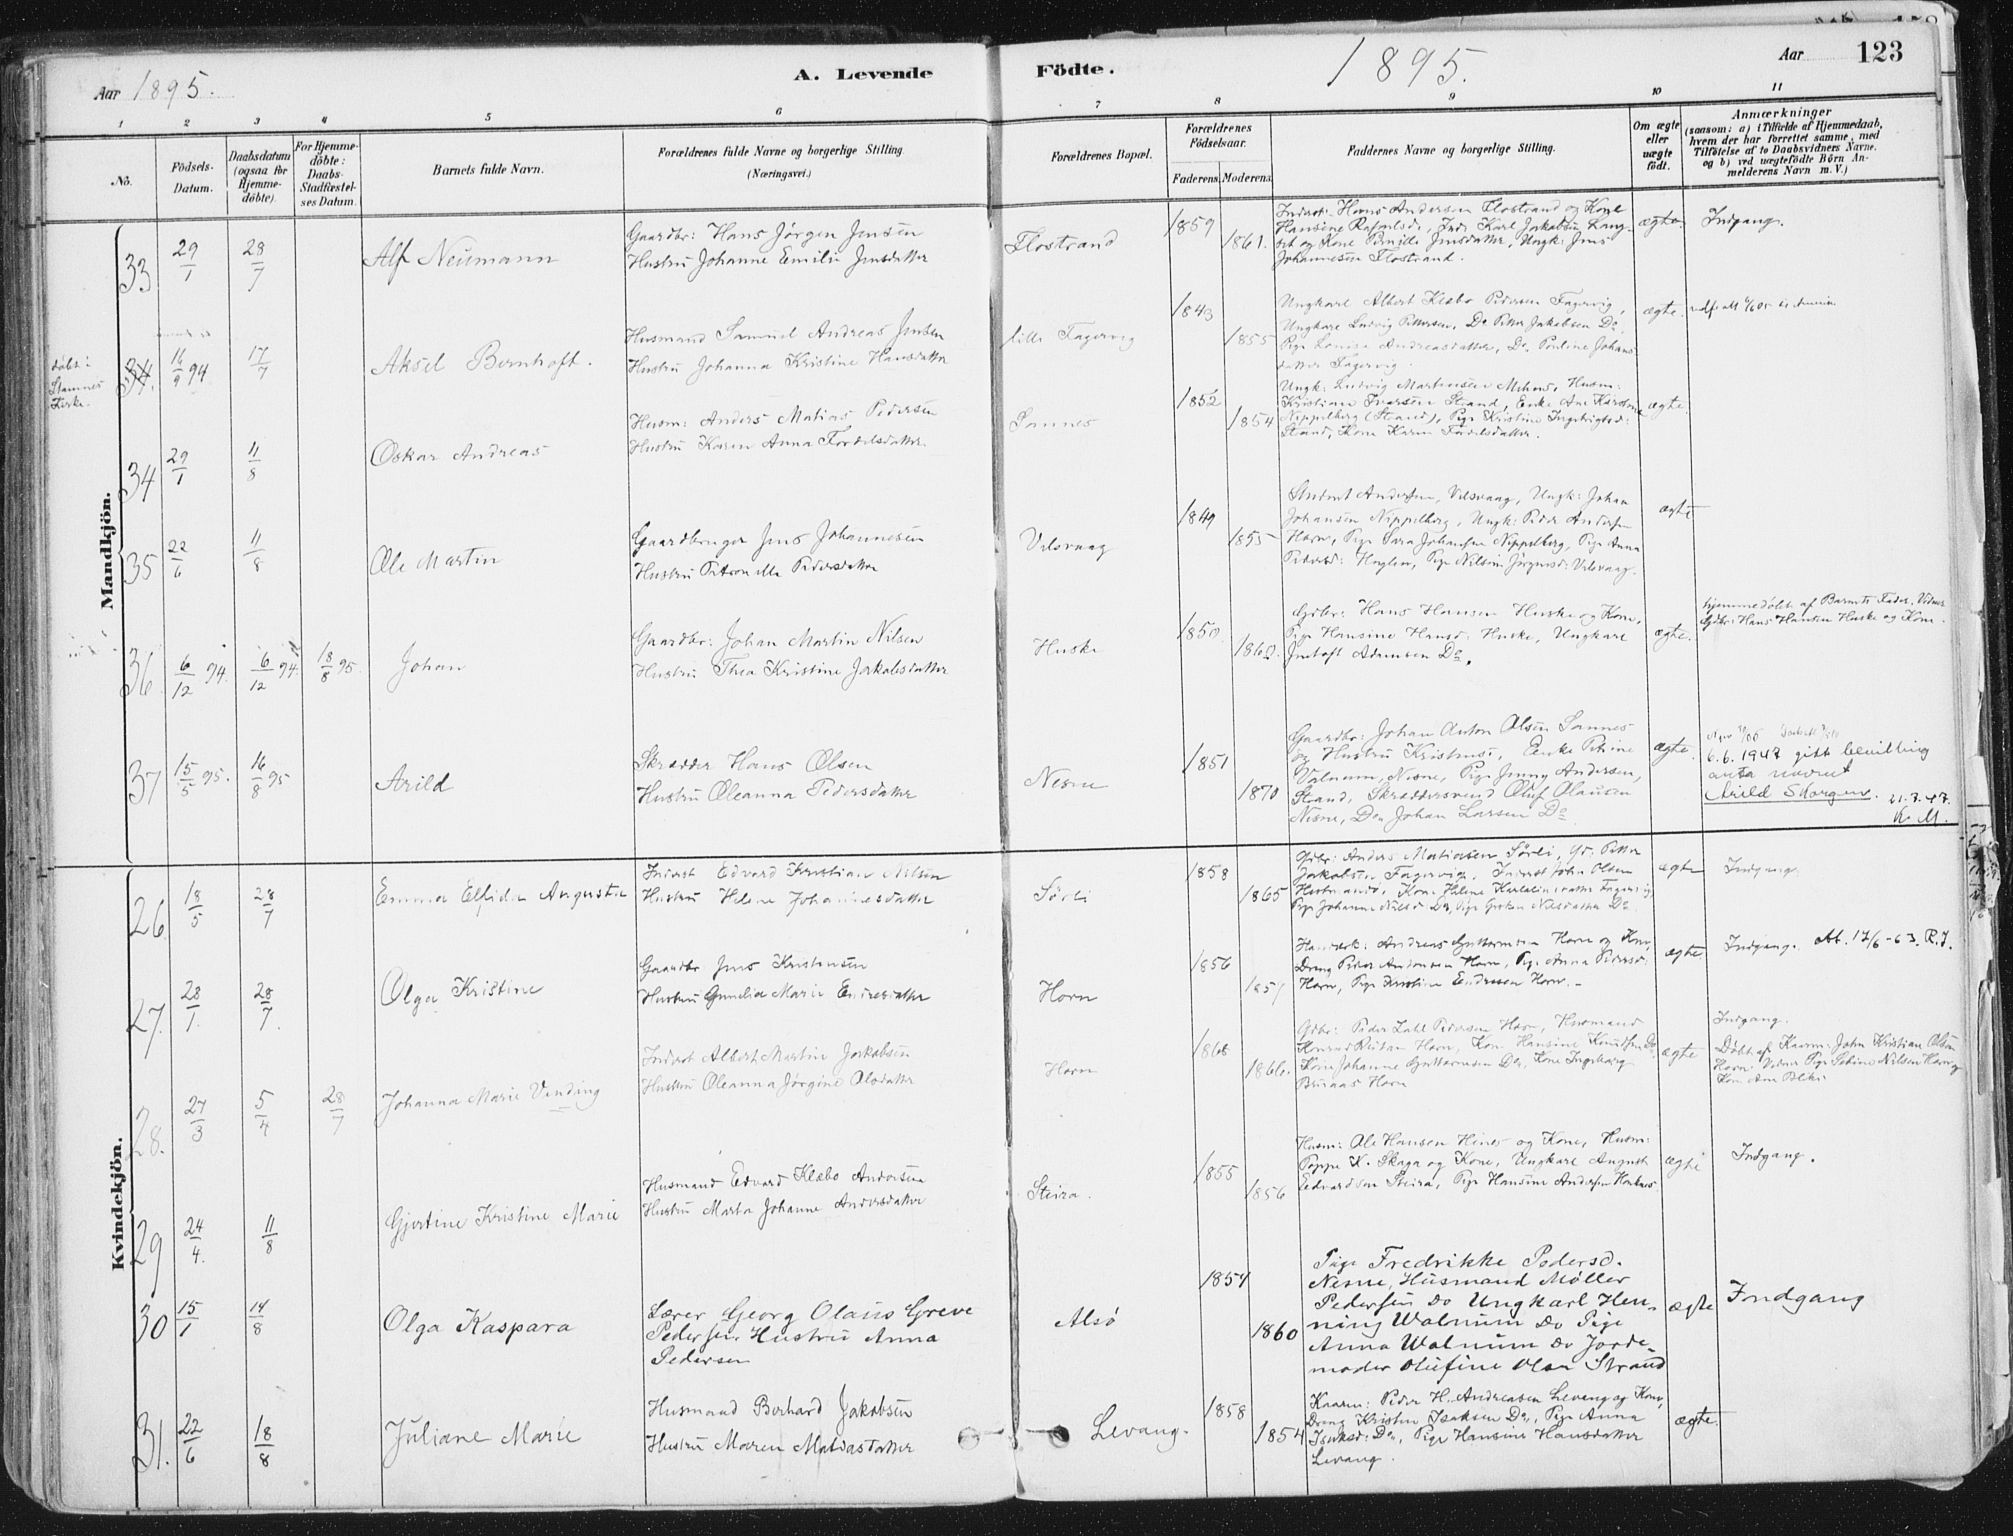 Aar 1895.
A. Levende Födte.
1895.
Aar 123
1 2 3 4 5 6 7 8 9 10 11
No.
Födsels-Datum.
Daabsdatum (ogsaa for Hjemmedöbte).
For Hjemmedöbte: Daabs-Stadfæstelses Datum.
Barnets fulde Navn.
Forældrenes fulde Navne og borgerlige Stilling. (Næringsvei.)
Forældrenes Bopæl.
Forældrenes Födselsaar.
Faderens. Moderens.
Faddernes Navne og borgerlige Stilling.
Om ægte eller uægte födt.
Anmærkninger
(saasom: a) i Tilfælde af Hjemmedaab, hvem der har forrettet samme, med Tilföielse af to Daabsvidners Navne. og b) ved uægtefödte Börn Anmelderens Navn m. V.)
Mandkjön.
33 29/1 28/7 Alf Neumann
Gaardbr: Hans Jørgen Jensen
Hustru Johanne Emilie Jensdatter
Flostrand 1859 1861.
Inderst: Hans Andersen Flostrand og Kone
Johannesen Flostrand.
ægte. Indgang.
døbt i Stamnes Kirke.
34. 16/9 94 17/7 Aksel Bernhoft.
Husmand Samuel Andreas Jensen
Hustru Johanna Kristine Hansdatter
lille Fagervig 1843 1855
Ungkarl Albert Klæbo Pedersen Fagervig,
Ungkarl Ludvig Pettersen, Do Petter Jakobsen Do
Pige Lovisa Andreasdatter, Do Pauline Johansdatter Fagervig.
ægte.
34 29/1 11/8 Oskar Andreas
Husm: Anders Matias Pedersen
Hustru Karen Anna Fordelsdatter.
Sannes 1852 1854
Kristian Ivarsen Strand, Enke Ane
Nippelberg (Strand), Pige Kristine Ingebrigtsd:
Strand, Kone Karen
ægte.
35 22/6 11/8 Ole Martin
Gaardbruger Jens Johannesen
Hustru Petronelle Pedersdatter
Velsvaag 1849 1855
Andersen, Velsvaag, Ungk: Johan
Johansen Nippelberg, Ungk: Peder Andersen
Horn, Pige Sara Johansen Nippelberg, Pige Anna
Pedersd: Haglen, Pige Nilsine Jørgensd: Velsvaag.
ægte
36. 6/12 94. 6/12 94. 18/8 95. Johan
Gaardbr: Johan Martin Nilsen
Hustru Thea Kristine Jakobsdatter
Huske 1850. 1860.
Gdbr: Hans Hansen Huske og Kone,
Pige Hansine Hansd: Huske, Ungkarl
Adamsen Do.
ægte.
hjemmedøbt af Barnets Fader. Vidner
Gdbr: Hans Hansen Huske og Kone.
37 15/5 95. 16/8 95 Arild
Skrædder Hans Olsen
Hustru Oleanna Pedersdatter
Nesne 1851 1870
Gaardbr: Johan Anton Olsen Sannes
og Hustru Kristense, Enke Petrine
Valnum, Nesne, Pige Jenny Andersen,
Strand, Skræddersvend Oluf Olausen
Nesne, Do Johan Larsen Do
ægte.
6.6.1947 gitt bevilling
anta navnet
Arild Skorgen. 21.7.47.
K. M.
Kvindekjön.
26. 18/5 28/7 Emma Elfida Augusta
Inderst Edvard Kristian Nilsen
Hustru Helene Johannesdatter
Sørli 1858 1865
Gdbr: Anders Matiasen Sørli, Gr. Petter
Jakobsen Fagervig, Inderst John Olsen
Pige Johanne Nilsd Do, Pige Nilsdatter Do
ægte Indgang.
27. 28/1. 28/7. Olga Kristine
Gaardbr Jens Kristensen
Hustru Gunelia Marie Endresdatter
Horn 1856 1857
Andreas Guttormsen Horn og Kone,
Dreng Peder Andersen Horn, Pige Anna Pedersd:
Horn, Pige Kristine Endresen Horn.
ægte. Indgang. Att. 17/6-63. R.J.
28. 27/3 5/4 28/7 Johanna Marie Vending
Inderst Albert Martin Jakobsen
Hustru Oleanna Jørgine Olsdatter
Horn 1868 1866.
Gdbr: Peder Dahl Pedersen Horn, Husmand
Konrad Horn, Kone Hansine Knudsen Do,
Kone Johanne Guttormsen Do, Kone Ingeborg
Horn
ægte Indgang.
Døbt af Kaarm: John Kristian Olsen
Horn. Vidner Pige Nilsen Horn og
Kone Ane
29 24/4. 11/8 Gjertine Kristine Marie
Husmand Edvard Klæbo Andersen
Hustru Marta Johanne Andersdatter
Steira. 1855 1856
Husm: Ole Hansen og Kone, Husm:
Poppe K. Skaga og Kone, Ungkarl August
Edvardsen Steira, Pige Hansine Andersen
ægte Indgang.
30 15/1 14/8 Olga Kaspara
Lærer Georg Olaus Greve
Pedersen, Hustru Anna
Pedersen
Alsø 1857 1860
Pige Fredrikke Pedersd.
Nesne, Husmand Møller
Pedersen Do Ungkarl Hen-
ning Walnum Do Pige
Anna Walnum Do Jorde-
moder Olufine Olsen Strand
ægte Indgang
31. 22/6 18/8 Juliane Marie
Husmand Berhard Jakobsen
Hustru Maren Matiasdatter
Levang. 1858 1854
Kaarm: Peder H. Andreasen Levang og Kone,
Dreng Kristen Isaksen Do, Pige Anna
Isaksd: Do, Pige Hansine Hansdatter
Levang.
ægte.